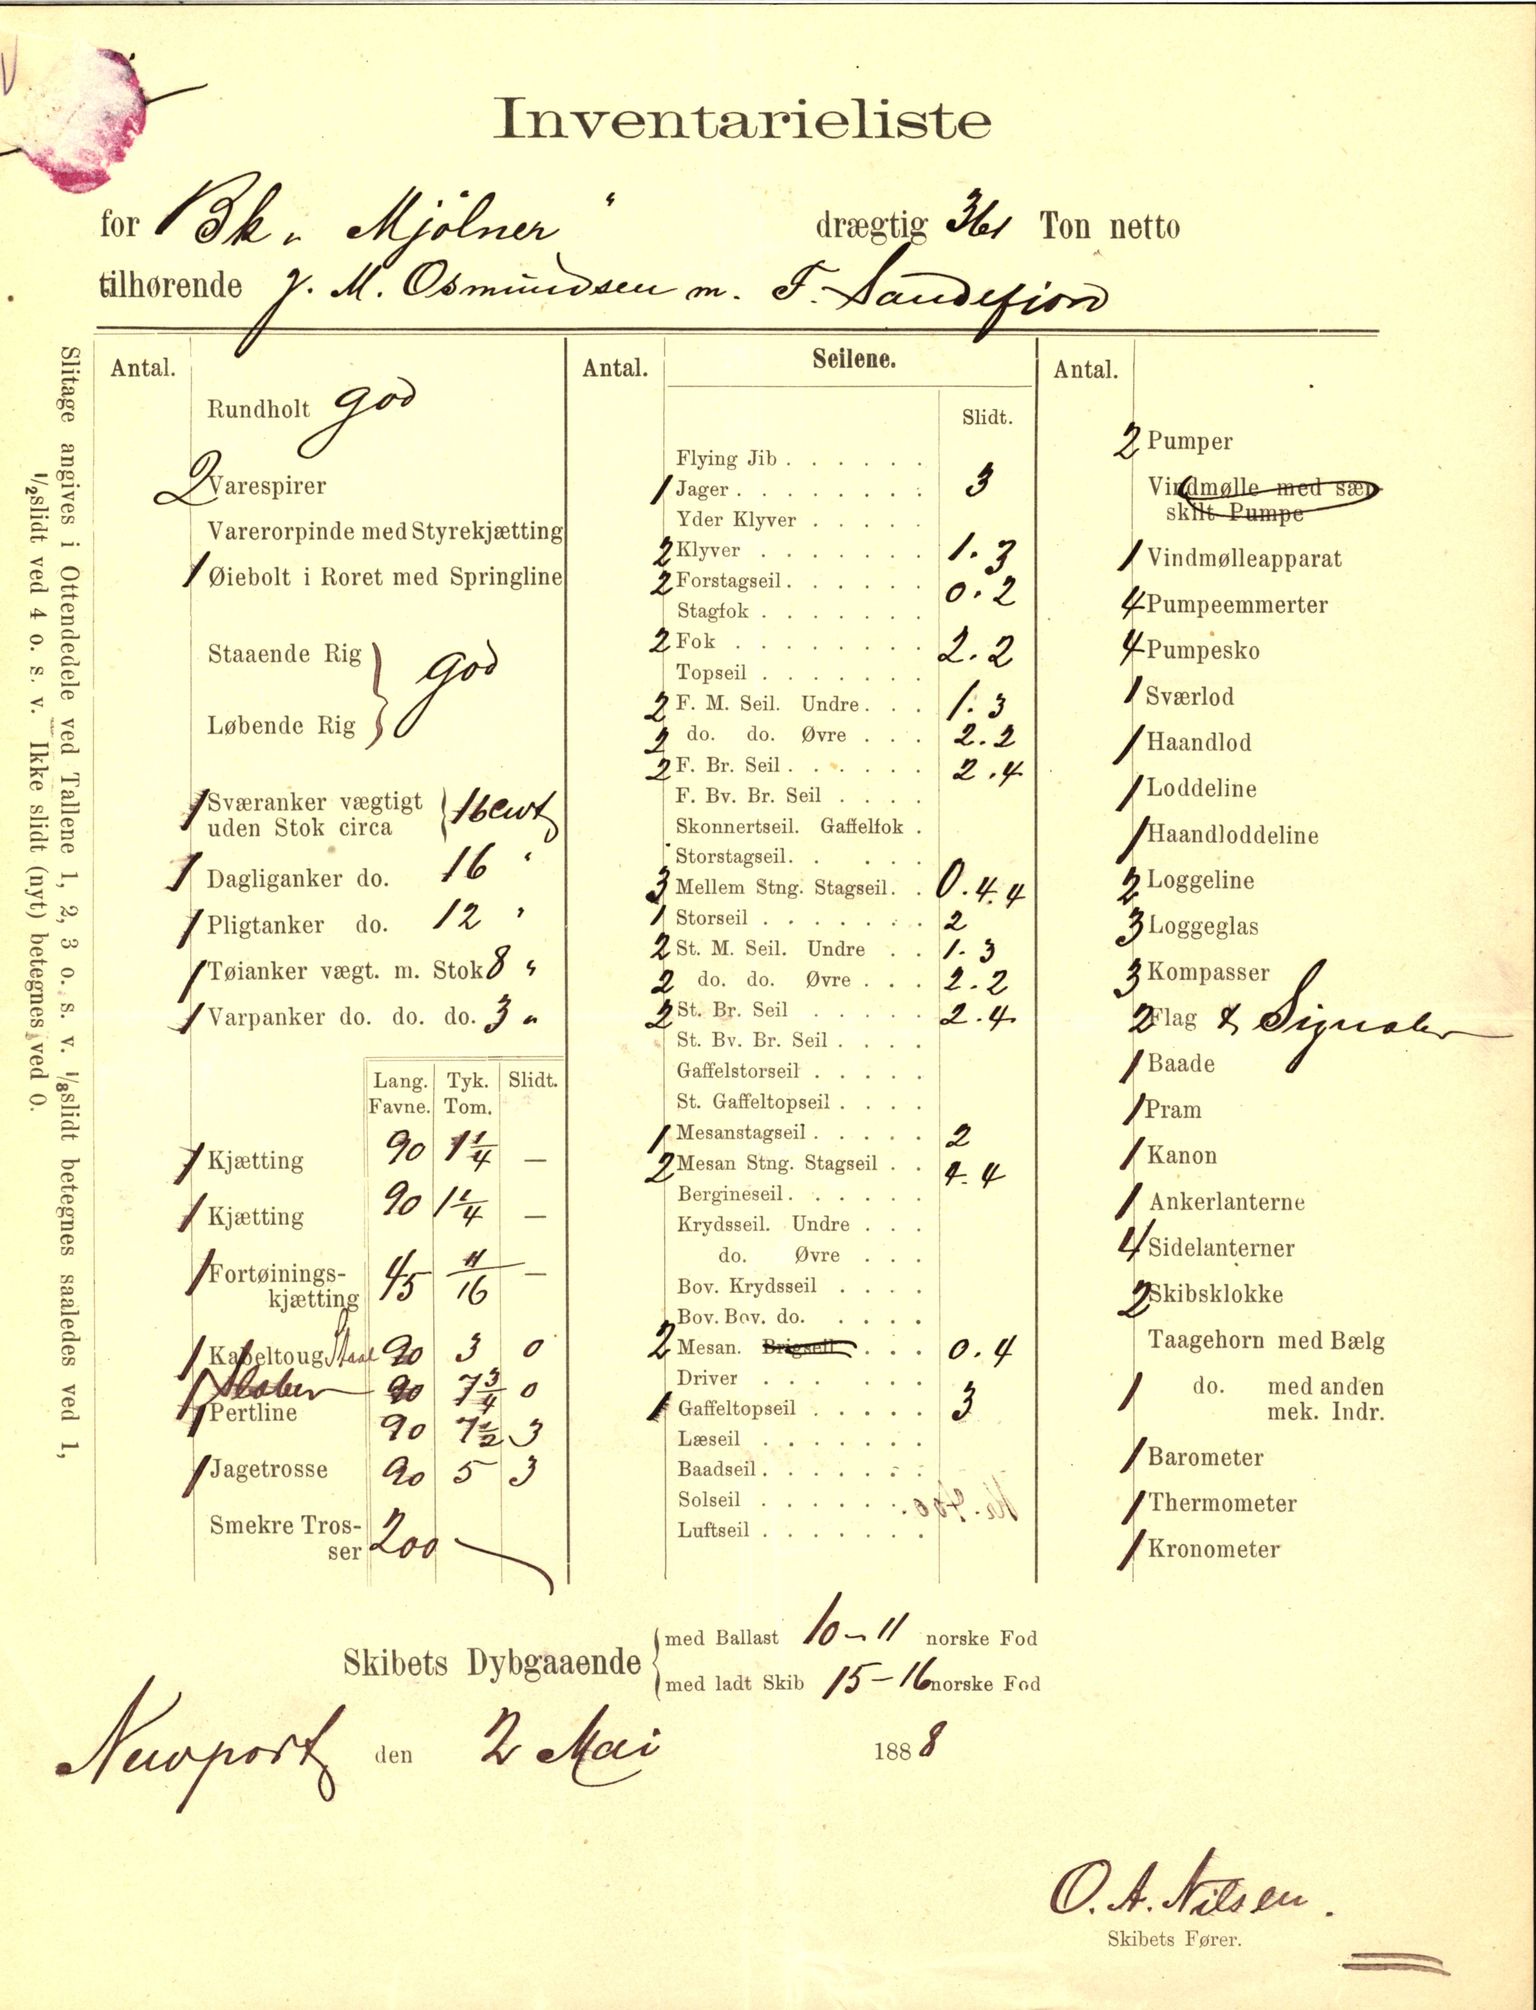 Inventarieliste
for Bk „ Mjölner " drægtig 361 Ton netto
tilhørende J. M. Osmundsen m. F. Sandefjord
Slitage angives i Ottendedele ved Tallene 1, 2, 3 o. s. v. 1/8slidt betegnes saaledes ved 1,
1/2slidt ved 4 o. s. v. Ikke slidt (nyt) betegnes ved 0.
Antal.
Rundholt god
2 Varespirer
Varerorpinde med Styrekjætting
1 Øiebolt i Roret med Springline
Staaende Rig } god
Løbende Rig
1 Sværanker vægtigt
uden Stok circa { 16 cwt
1 Dagliganker do. 16 "
1 Pligtanker do. 12 "
1 Tøianker vægt. m. Stok 8 "
1 Varpanker do. do. do. 3 "
Lang. Tyk. Slidt.
Favne. Tom.
1 Kjætting 90 1 1/4 —
1 Kjætting 90 1 1/4 —
1 Fortøinings-
kjætting 45 11/16 —
1 Kabeltoug Staal 90 3 0
1 90 7 3/4 0
1 Pertline 90 7 1/2 3
1 Jagetrosse 90 5 3
Smekre Tros-
ser 200
Antal. Seilene.
Slidt.
Flying Jib . . . . . .
1 Jager . . . . . . . . 3
Yder Klyver . . . . .
2 Klyver . . . . . . . 1. 3
2 Forstagseil . . . . . . 0. 2
Stagfok . . . . . . .
2 Fok . . . . . . . . 2. 2
Topseil . . . . . . .
2 F. M. Seil. Undre . . . 1. 3
2 do. do. Øvre . . . 2. 2
2 F. Br. Seil . . . . . . 2. 4
F. Bv. Br. Seil . . . .
Skonnertseil. Gaffelfok .
Storstagseil. . . . .
3 Mellem Stng. Stagseil. . 0. 4. 4
1 Storseil . . . . . . . 2
2 St. M. Seil. Undre . . 1. 3
2 do. do. Øvre . . . 2. 2
2 St. Br. Seil . . . . . 2. 4
St. Bv. Br. Seil . . . .
Gaffelstorseil . . . . .
St. Gaffeltopseil . . . .
1 Mesanstagseil . . . . . 2
2 Mesan Stng. Stagseil . . 4. 4
Bergineseil . . . . . .
Krydsseil. Undre . . .
do. Øvre . . .
Bov. Krydsseil . . . .
Bov. Bov. do. . . . .
2 Mesan. Brigseil . . . 0. 4
Driver . . . . . .
1 Gaffeltopseil . . . . . 3
Læseil . . . . . . .
Baadseil . . . . . . .
Solseil . . . . . . .
Luftseil . . . . . . .
Antal.
2 Pumper
Vindmølle med sær-
skilt Pumpe
1 Vindmølleapparat
4 Pumpeemmerter
4 Pumpesko
1 Sværlod
1 Haandlod
1 Loddeline
1 Haandloddeline
2 Loggeline
3 Loggeglas
3 Kompasser
2 Flag & Signaler
1 Baade
1 Pram
1 Kanon
1 Ankerlanterne
4 Sidelanterner
2 Skibsklokke
Taagehorn med Bælg
1 do. med anden
mek. Indr.
1 Barometer
1 Thermometer
1 Kronometer
Skibets Dybgaaende { med Ballast 10 – 11 norske Fod
med ladt Skib 15 – 16 norske Fod
Newport den 2 Mai 1888
O. A. Nilsen.
Skibets Fører.